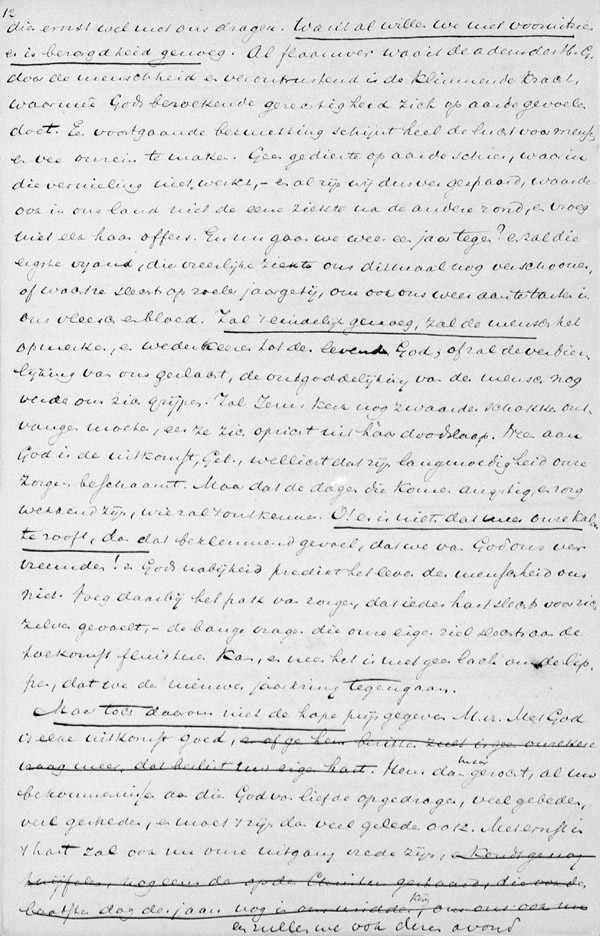 12
die ernst wel met ons dragen. Want al willen we niet vooruitzien
er is bezorgdheid genoeg. Al flaauwer waait de adem des H. G.
door de menschheid en verontrustend is de klimmende kracht,
waarmeê Gods bezoekende gerechtigheid zich op aarde gevoelen
doet. Een voortgaande besmetting schijnt heel de lucht voor mensch
en vee onrein te maken. Geen gedierte op aarde schier, waarin
die vernieling niet werkt, – en al zijn wij dus ver gespaard, waarde
ook in ons land niet de eene ziekte na de andere rond, en vroeg
niet elk haar offers. En nu gaan we weer een jaar tegen? en zal die
eigste vijand, die vreeslijke ziekte ons ditmaal nog verschoonen,
of wachtte slechts op zoele jaargetij, om ook ons weer aan te tasten in
ons vleesch en bloed. Zal 't eindelijk genoeg, zal de mensch het
opmerken, en wederkeeren tot den levenden God, of zal de verdier-
lijking van ons geslacht, de ontgoddelijking van den mensch nog
verder om zich grijpen. Zal Jezus kerk nog zwaarder schokken ont-
vangen moeten, eer ze zich opricht uit haar doodslaap. Neen aan
God is de uitkomst, Gel., wellicht dat zijn langmoedigheid onze
zorgen beschaamt. Maar dat de dagen die komen angstig en zorg
wekkend zijn, wie zal 't ontkennen. O! er is niets dat meer onze kalm-
te rooft, dan dat beklemmend gevoel, dat we van God ons ver
vreemden! en Gods nabijheid predikt het leven der menschheid ons
niet. Voeg daarbij het pak van zorgen, dat ieders hart slechts voor zich
zelven gevoelt, – de bange vragen die onze eigen ziel slechts aan de
toekomst fluisteren kan, en neen het is met geen lach om de lip-
pen, dat we de nieuwen jaarkring tegengaan.
Maar toch daarom niet de hope prijsgegeven M. vr. Met God
is elke uitkomst goed, en of ge hem bezit
vraag meer, dat beslist uw eigen hart. Hem dan maar gezocht, al uw
bekommernissen aan die God van liefde opgedragen, veel gebeden,
veel gestreden, en moet 't zijn dan veel geleden ook. Met ernst in
't hart zal ook nu onze uitgang vrede zijn,
de op de Christen die van de
laatsten dag des jaars nog in ons midden
en zullen we ook dezen avond